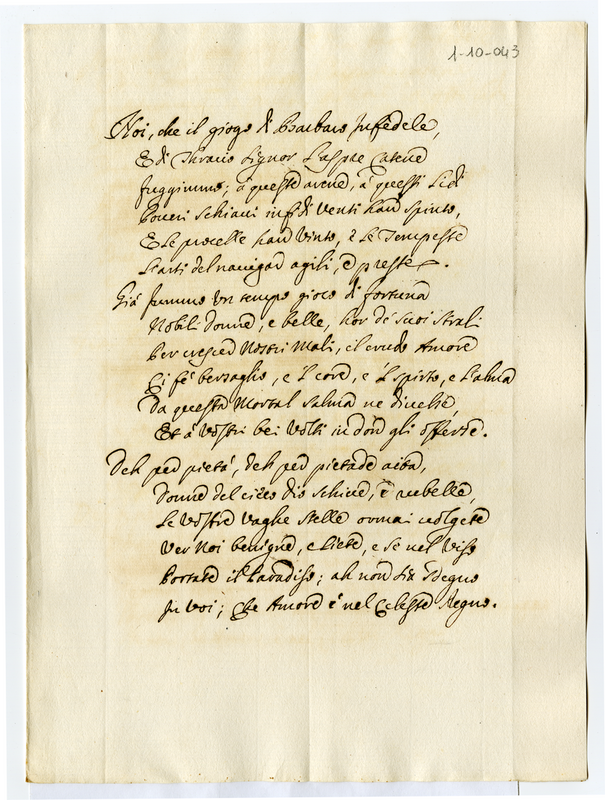 1-10-043
Noi, che il giogo di Barbaro Infedele,
E di Thracio Signor l'aspre Catene
fuggimmo; à queste arene, à questi Lidi
Poveri Schiavi infidi Venti han spinto,
E le procelle han Vinto, e le Tempeste
L'arti del navigar agili, e preste.
Già fummo un tempo gioco di fortuna
Nobili Donne, e belle, hor de' suoi strali
Per crescer Nostri Mali, il crudo Amore
Ci fè bersaglio, e 'l core, e 'l spirto, e l'alma
Da questa Mortal Salma ne divelse,
Et à Vostri bei Volti in don gli offerse.
Deh per pietà, deh per pietade aita,
Donne del cieco dio schive, e rubelle,
Le Vostre Vaghe Stelle ormai volgete
Ver Noi benigne, e liete, e se nel Viso
Portate il Paradiso; ah non sia Sdegno
In Voi; Che Amore è nel Celeste Regno.